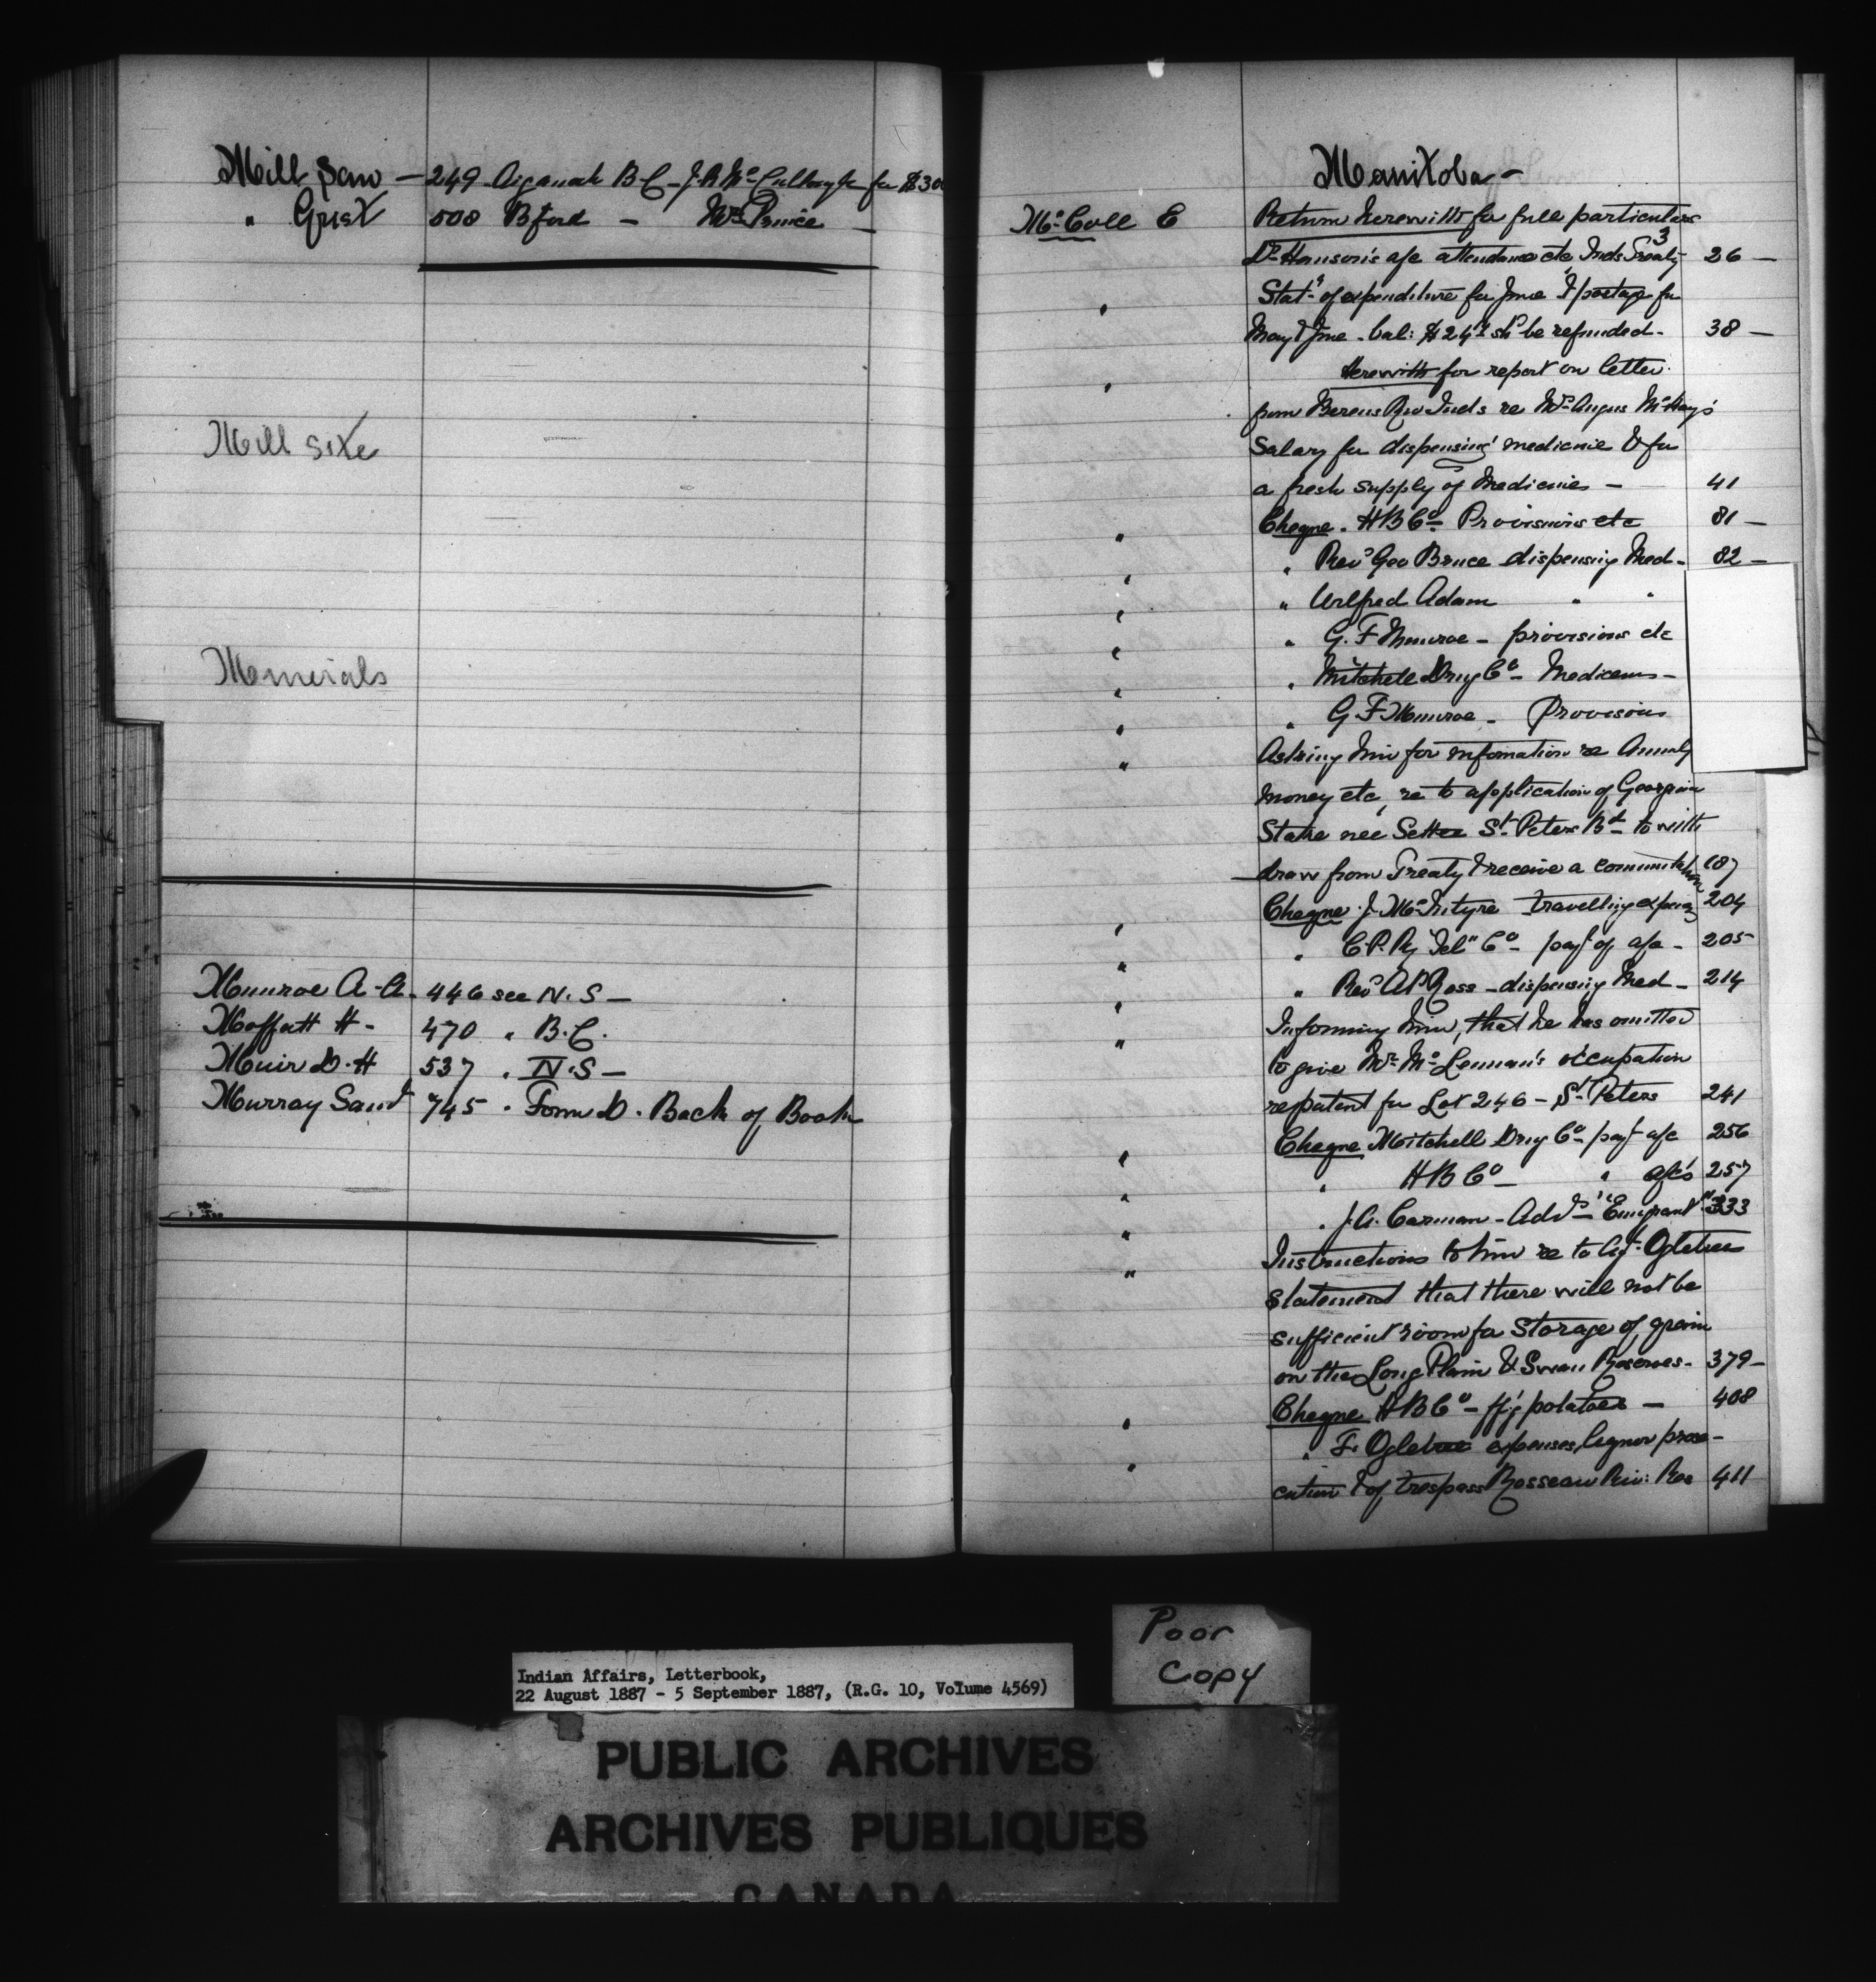 Mill Saw — 249 Aiyansh B.C - J.A McCullough for $300
" Grist 508 Bford — Mr Prince —
Mill Site
Minerals
Munroe A-A. 446 see N.S —
Moffatt H- 470 " B.C.
Muir D.H 537 " N.S —
Murray Saml 745 " Form D. Back of Book
Manitoba -
McColl E Return herewith for full particulars
Dr Hanson's a/c attendance etc Inds Treaty 3 26 —
" Statt of expenditure for June & postage for
May & June. bal: $24 shd be refunded. 38 —
" Herewith for report on letter
from Berens Riv Inds re Mr Angus McKay's
Salary for dispensing medicine & for
a fresh supply of Medicines — 41
" Cheque. H B Co — Provisions etc 81 —
" " Revd Geo Bruce dispensing Med- 82 —
" " Wilfred Adam " "
" " G. F Munroe — provisions etc
" " Mitchell Drug Co — Medicines —
" " G F Munroe — Provisions
" Asking him for information re Annuity
Money etc, re to application of Georgina
Stake née Settee St Peters Bd to with
draw from Treaty & receive a commutation 187
" Cheque J. McIntyre travelling expenses 204
" " C.P. Ry Tel" Co — payt of a/c — 205
" " Revd A B Ross — dispensing Med — 214
" Informing him, that he has omitted
to give Mr McLennan's occupation
re patent for Lot 246 — St Peters 241
" Cheque Mitchell Drug Co payt a/c 256
" " H B Co — " a/cs 257
" " J.A. Carman — Advt "Emigrant" 333
" Instructions to him re to Agt Ogletree
statement that there will not be
sufficient room for storage of grain
on the Long Plain & Swan Reserves — 379 —
" Cheque H B Co — potatoes — 408
" " F. Ogletree expenses liquor prose-
cution & of trespass Rosseau Riv: Res 411
Poor
Copy
Indian Affairs, Letterbook,
22 August 1887 - 5 September 1887, (R.G. 10, Volume 4569)
PUBLIC ARCHIVES
ARCHIVES PUBLIQUES
CANADA